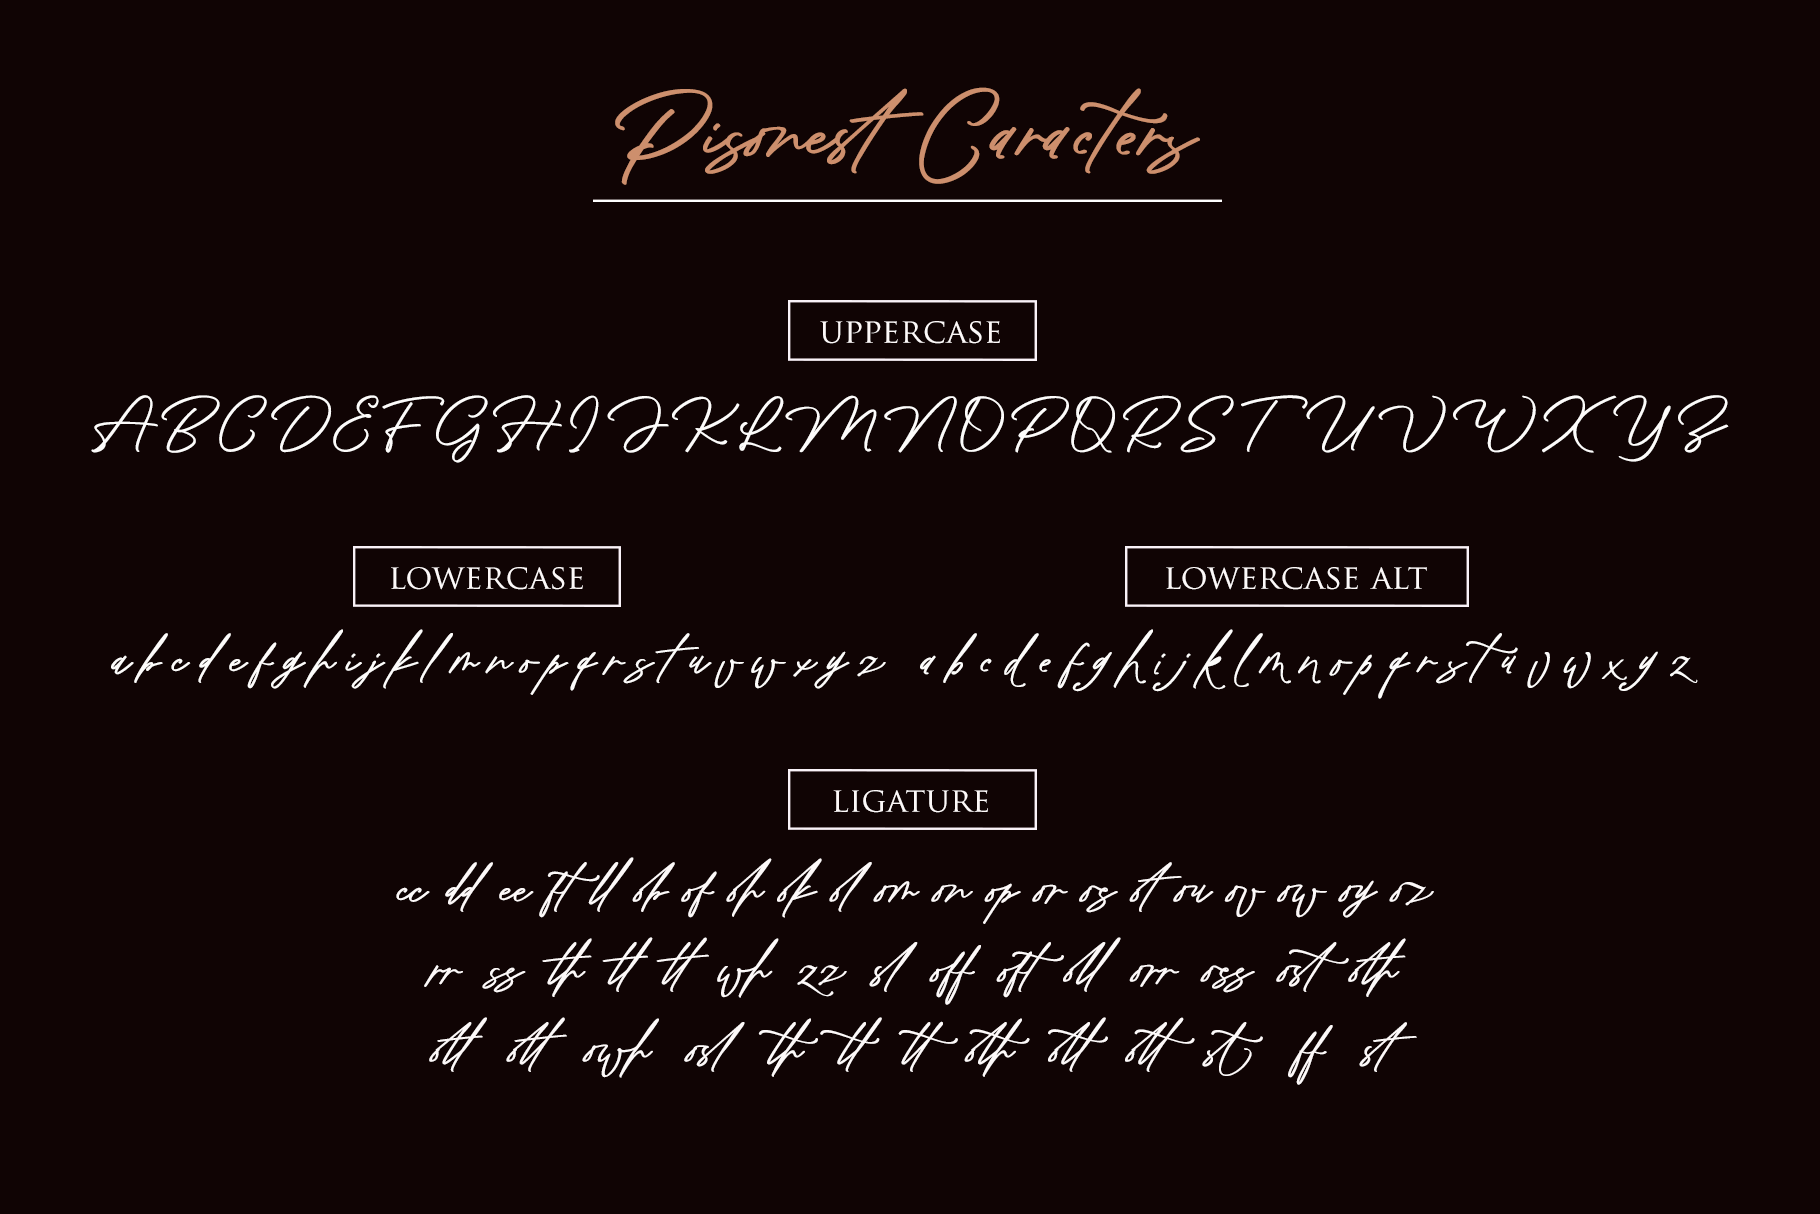 Pisonest Caracters
UPPERCASE
A B C D E F G H I J K L M N O P Q R S T U V W X Y Z
LOWERCASE
LOWERCASE ALT
a b c d e f g h i j k l m n o p q r s t u v w x y z
a b c d e f g h i j k l m n o p q r s t u v w x y z
LIGATURE
cc dd ee ft ll ob of oh ok ol om on op or os ot ou ov ow oy oz
rr ss th tl tt wh zz sl off oft oll orr oss ost oth
otl ott owh osl th tl tt oth otl ott st ff st